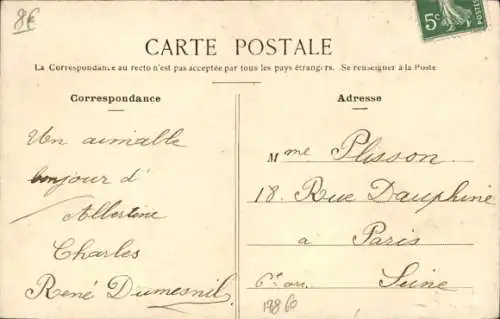 8€
5c
CARTE POSTALE
La Correspondance au recto n'est pas acceptée par tous les pays étrangers. Se renseigner à la Poste
Correspondance
Un aimable
bonjour d'
Albertine
Charles
René Dumesnil
Adresse
Mme Plisson
18. Rue Dauphine
à Paris
6e arr. Seine